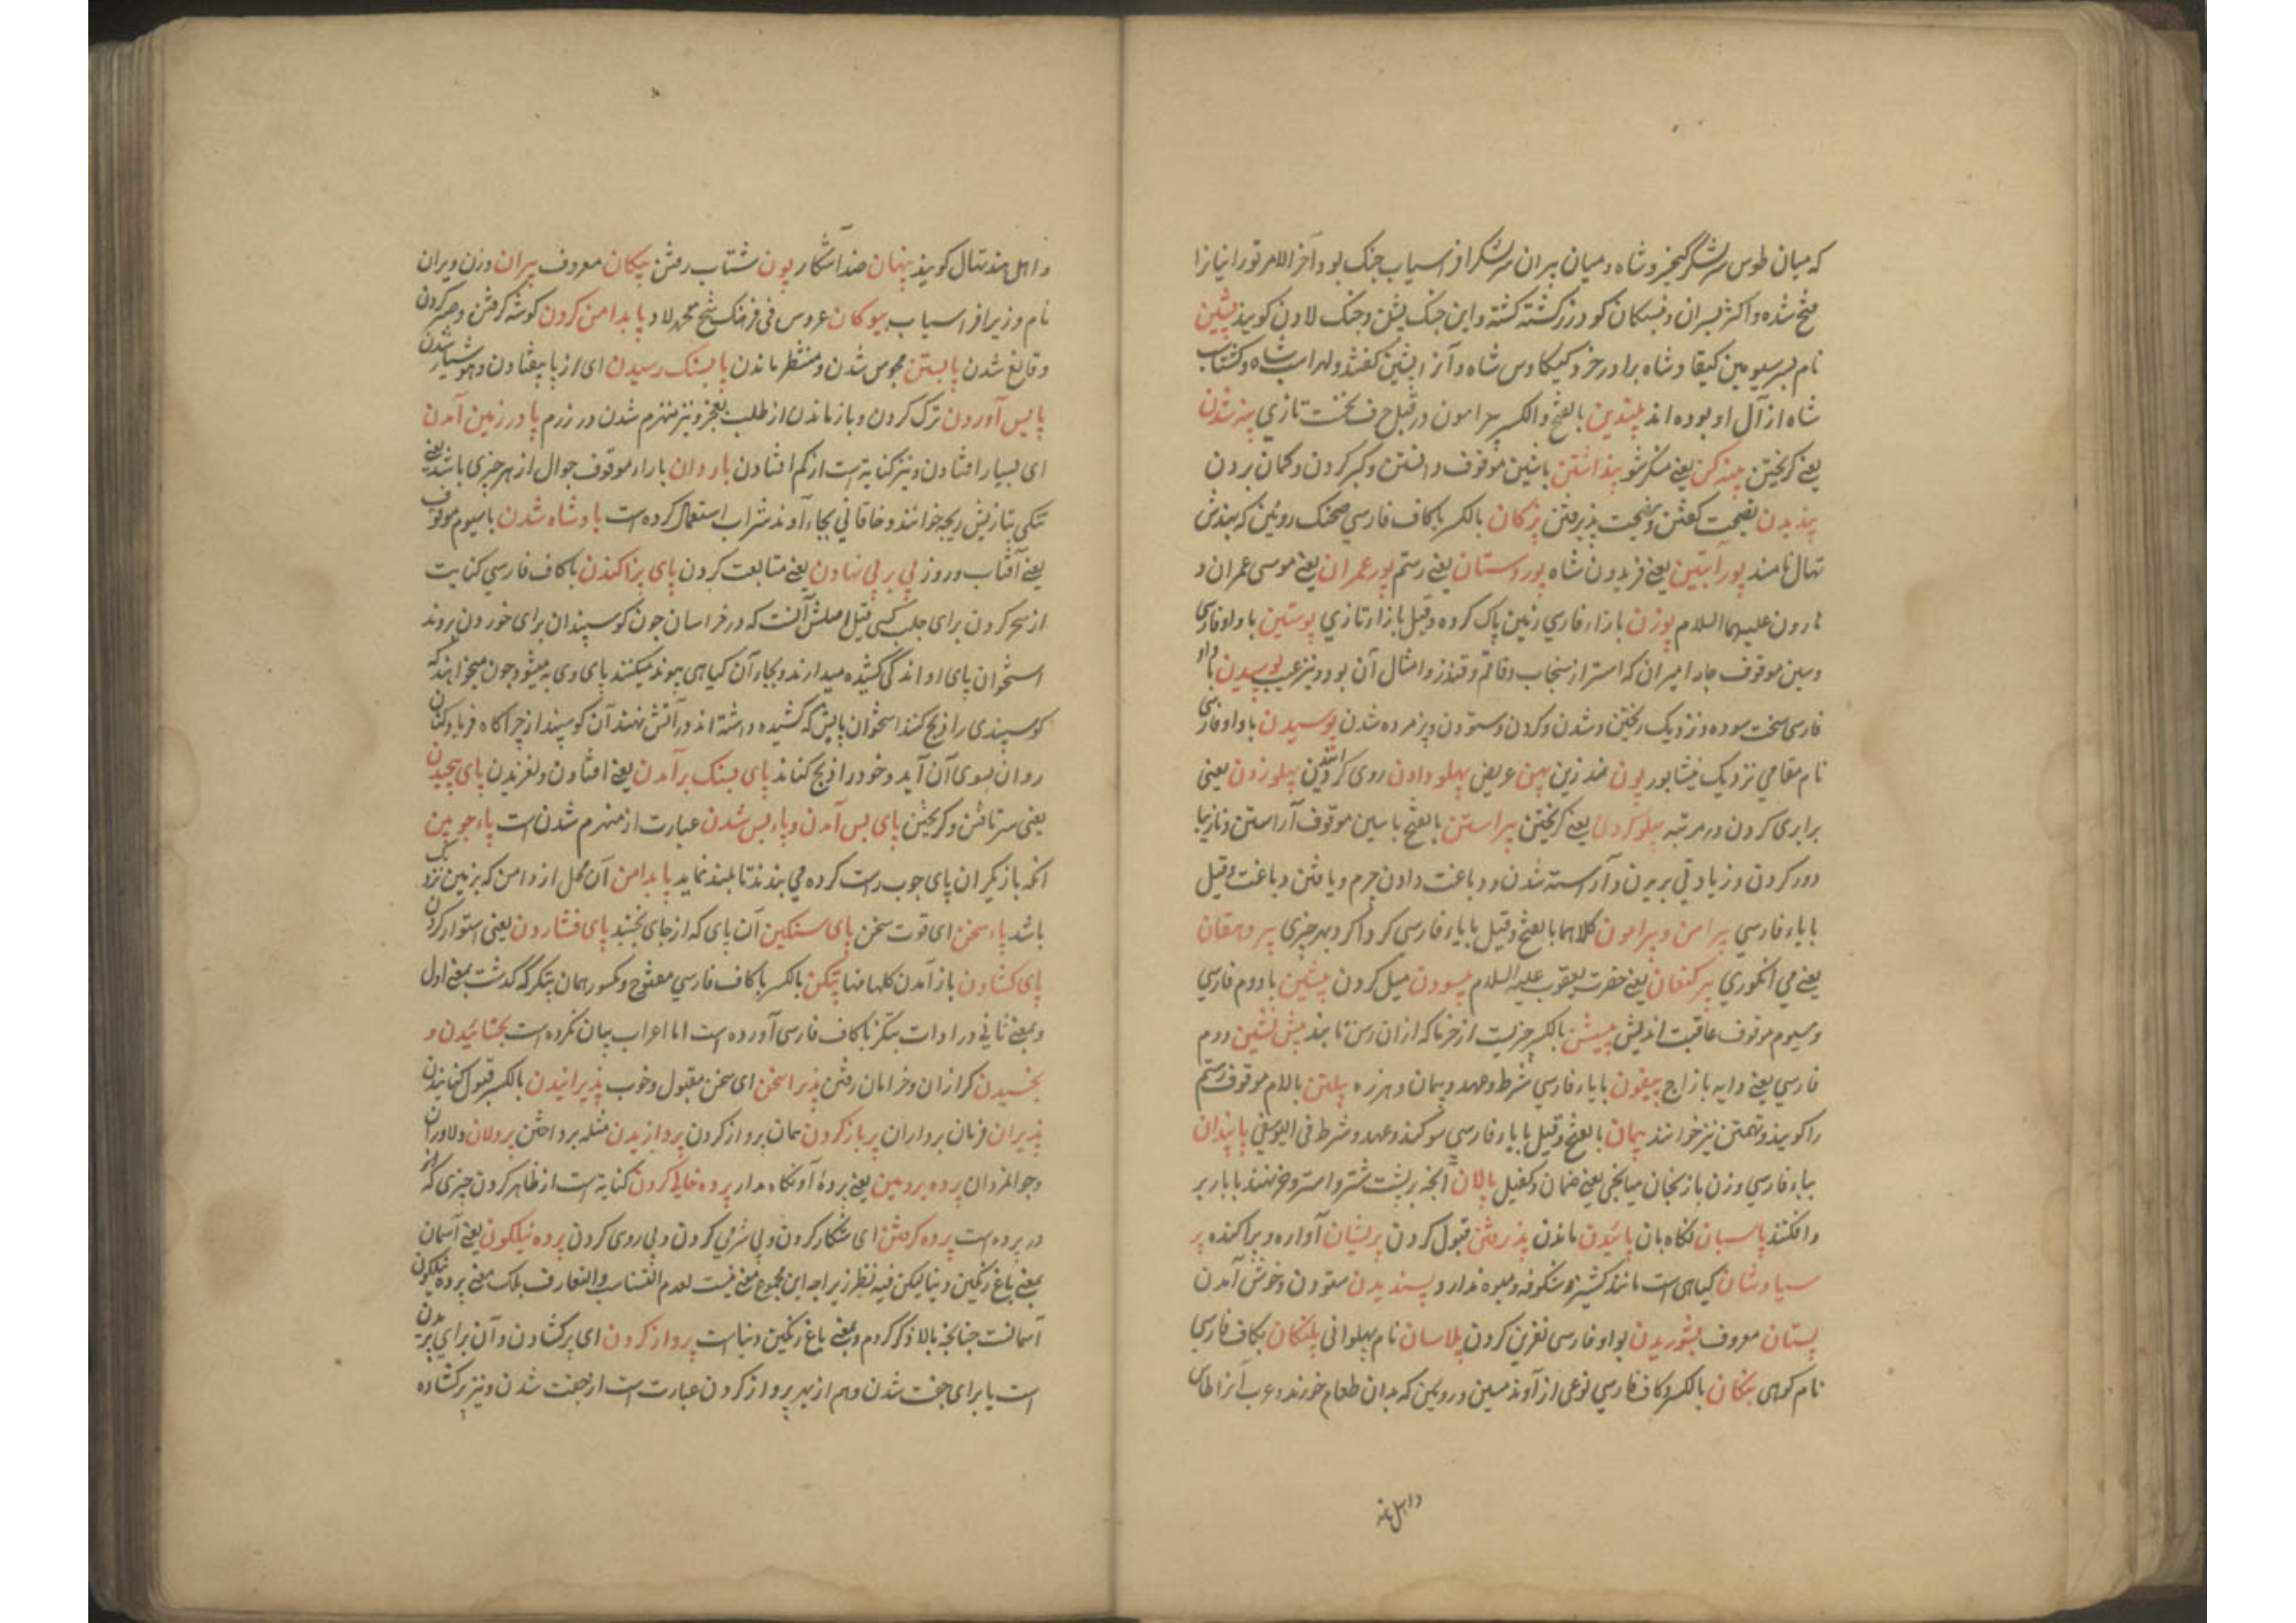 که میان طوس سرلشکر کیخسرو شاه و میان پیران سرلشکر افراسیاب جنک بود و آخر الامر تورانیانرا
فتح شده و اکثر پسران و نبسکان کودرز کشته کشته و این جنک پشن و جنک لادن کویند پشین
نام پسر سیومین کیقباد شاه برادر خرد کیکاوس شاه و آنرا پشین کفتند و لهراسب شاه و کشتاسب
شاه از آل او بوده اند بالفتح والکسر پیرامون و قبل حرف نخست تازی پنبه شدن
یعنی کریختن پنبه کن یعنی منکر شو پنداشتن با شین موقوف دانستن و کبر کردن و کمان بردن
نصیحت کفتن و نصیحت پذیرفتن پنکان بالکسر با کاف فارسی روئین که هندش
تهال نامند پور آبتین یعنی فریدون شاه پور دستان یعنی رستم پور عمران یعنی موسی عمران و
هارون علیهما السلام پوزن بازاء فارسی زمین پاک کرده و قیل بازاء تازی پوستین با واو فارسی
و سین موقوف جامه امیران که استر از سنجاب و قاقم و قندز و امثال آن بود و نیز عیب پوسیدن با واو
فارسی سخت سوده و نزدیک ریختن و شدن و کردن و ستودن و پژمرده شدن پوسیدن با واو فارسی
نام مقامی نزدیک نیشابور پون نمد زین پهن عریض پهلو دادن روی کردانیدن پهلو زدن یعنی
برابری کردن در مرتبه پهلو کردن یعنی کریختن پیراستن بالفتح با سین موقوف آراستن و نازیبا
دور کردن و زیادتی بریدن و آراسته شدن و دباغت دادن چرم و یافتن دباغت و قیل
با یاء فارسی پیرامن و پیرامون کلاهما بالفتح و قیل با یاء فارسی کرداکرد هر چیزی پیر دهقان
یعنی می انکوری پیر کنعان یعنی حضرت یعقوب علیه السلام پیسودن میل کردن پیشین با دوم فارسی
و سیوم موقوف عاقبت اندیش پیشن بالکسر چیزیست از خرما که ازان رسن تابند پیش نشین دوم
فارسی یعنی دایه بازاج پیغون با یاء فارسی شرط و عهد و پیمان و هرزه پیلتن با لام موقوف رستم
را کویند و تهمتن نیز خوانند پیمان بالفتح و قیل با یاء فارسی سوکند و عهد و شرط فی الیوسفی پایندان
بباء فارسی وزن بازنجان میانجی یعنی ضمان و کفیل پالان آنچه بر پشت شتر و استر و خر نهند تا بار بر
و افکنند پاسبان نکاه بان پائیدن ماندن پذرفتن قبول کردن پریشان آواره و پراکنده پر
سیاوشان کیاهی است مانند کشنیز و شکوفه و میوه ندارد پسندیدن ستودن و خوش آمدن
پستان معروف پشوریدن بواو فارسی نفرین کردن پلاسان نام پهلوانی پلنکان بکاف فارسی
نام کوهی پنکان بالکسر و کاف فارسی نوعی از آوند مسین و رویین که بدان طعام خورند و عرب آنرا طاس
و اهل هند
و اهل هند تهال کویند پنهان ضد آشکار پون شتاب رفتن پیکان معروف پیران وزن ویران
نام وزیر افراسیاب پیوکان عروس فی فرهنک شیخ محمد لاد پا بدامن کردن کوشه کرفتن و صبر کردن
و قانع شدن پا بستن محبوس شدن و منتظر ماندن پا بسنک رسیدن ای از پا بیفتادن و هوشیار شدن
پا پس آوردن ترک کردن و باز ماندن از طلب بعجز و نیز منهزم شدن در رزم پا در زمین آمدن
ای بسیار افتادن و نیز کنایة است از کم افتادن پاروان با راء موقوف جوال از هر چیزی باشد یعنی
تنکی بتازیش ریحه خوانند و خاقانی بجاء آوند شراب استعمال کرده است پادشاه شدن با سیوم موقوف
یعنی آفتاب و روز پی بر پی نهادن یعنی متابعت کردن پای بر آکندن با کاف فارسی کنایت
از سحر کردن برای جلب کسی قیل اصلش آنست که در خراسان چون کوسپندان برای خوردن بروند
استخوان پای او اندکی کشیده میدارند و بجاء آن کیاهی پیوند میکنند پای وی به میشود چون میخواهند که
کوسپندی را ذبح کنند استخوان پایش که کشیده داشته اند در آتش نهند آن کوسپند از چراکاه فریاد کنان
روان بسوی آن آید و خود را ذبح کناند پای بسنک برآمدن یعنی افتادن و لغزیدن پای پیچیدن
یعنی سر تافتن و کریختن پای پس آمدن و پاء پس شدن عبارت از منهزم شدن است پاء چوبین
آنکه بازیکران پای چوب راست کرده می بندند تا بلند نماید پا بدامن آن محل از دامن که بزمین نزدیک
باشد پاء سخن ای قوت سخن پای سنکین آن پای که از جای نجنبد پای فشاردن یعنی استوار کردن
پای کشادن باز آمدن کلها منها پتکن بالکسر با کاف فارسی مفتوح و مکسور همان پتکر که کذشت بمعنی اول
و بمعنی ثانی در ادات پتکر با کاف فارسی آورده است اما اعراب بیان نکرده است بخشائیدن و
بخسیدن کرازان و خرامان رفتن پذیرا سخن ای سخن مقبول و خوب پذیرانیدن بالکسر قبول کنانیدن
پذیران فرمان برداران پر باز کردن همان پرواز کردن پردازیدن مثله پرداختن پردلان دلاوران
و جوانمردان پرده پرومین یعنی پردهٔ آونکاه مدار پرده خالی کردن کنایة است از ظاهر کردن چیزی که
در پرده است پرده کرفتن ای شکار کردن و بی شرمی کردن و بی روی کردن پرده نیلکون یعنی آسمان
بمعنی باغ رنکین دنیا لیکن فیه نظر زیراچه این مجموع معنی نیست لعدم التناسب و التعارف بلک معنی پرده نیلکون
آسمانست چنانچه بالا ذکر کردم و بمعنی باغ رنکین دنیاست پرواز کردن ای پر کشادن و آن برای پریدن
است یا برای جفت شدن و هم از بهر پرواز کردن عبارت است از جفت شدن و نیز پر کشاده